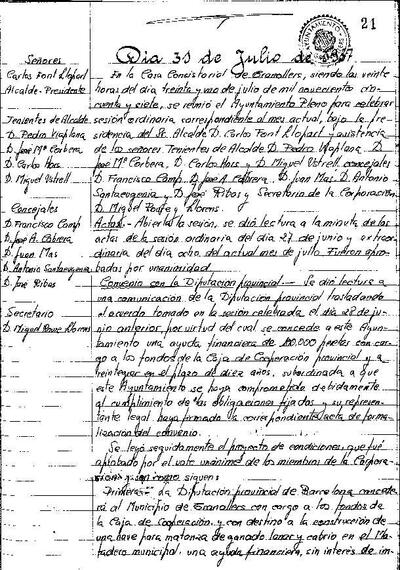 21
Día 31 de Julio de 1957
Señores
Carlos Font Llopart
Alcalde-Presidente
Tenientes de Alcalde
D. Pedro Viaplana
D. José Mª Corbera
D. Carlos Hors
D. Miguel Ustrell
Concejales
D. Francisco Comp
D. José A. Cabrera
D. Juan Mas
D. Antonio Santaeugenia
D. José Ribas
Secretario
D. Miguel Llorens
En la Casa Consistorial de Granollers, siendo las veinte
horas del día treinta y uno de julio de mil novecientos cin-
cuenta y siete, se reunió el Ayuntamiento Pleno para celebrar
sesión ordinaria correspondiente al mes actual, bajo la pre-
sidencia del Sr. Alcalde D. Carlos Font Llopart y asistencia
de los señores Tenientes de Alcalde D. Pedro Viaplana, D.
José Mª Corbera, D. Carlos Hors y D. Miguel Ustrell, concejales
D. Francisco Comp, D. José A. Cabrera, D. Juan Mas, D. Antonio
Santaeugenia y D. José Ribas y Secretario de la Corporación
D. Miguel y Llorens.
Actas.- Abierta la sesión, se dió lectura a la minuta de las
actas de la sesión ordinaria del día 27 de junio y extraor-
dinaria del día ocho del actual mes de julio. Fueron apro-
badas por unanimidad.
Convenio con la Diputación provincial.- Se dió lectura a
una comunicación de la Diputación provincial trasladando
el acuerdo tomado en la sesión celebrada el día 28 de ju-
nio anterior, por virtud del cual se concede a este Ayun-
tamiento una ayuda financiera de 100,000 pesetas con car-
go a los fondos de la Caja de Cooperación provincial y a
reintegrar en el plazo de diez años, subordinada a que
este Ayuntamiento se haya comprometido debidamente
al cumplimiento de las obligaciones fijadas y su represen-
tante legal haya firmado la correspondiente acta de forma-
lización del convenio.
Se leyó seguidamente el proyecto de condiciones, que fué
aprobado por el voto unánime de los miembros de la Corpora-
ción y son como siguen:
Primera:- La Diputación provincial de Barcelona concede-
rá al Municipio de Granollers con cargo a los fondos de
la Caja de Cooperación, y con destino a la construcción de
una nave para matanza de ganado lanar y cabrío en el Ma-
tadero municipal, una ayuda financiera, sin interés de im-